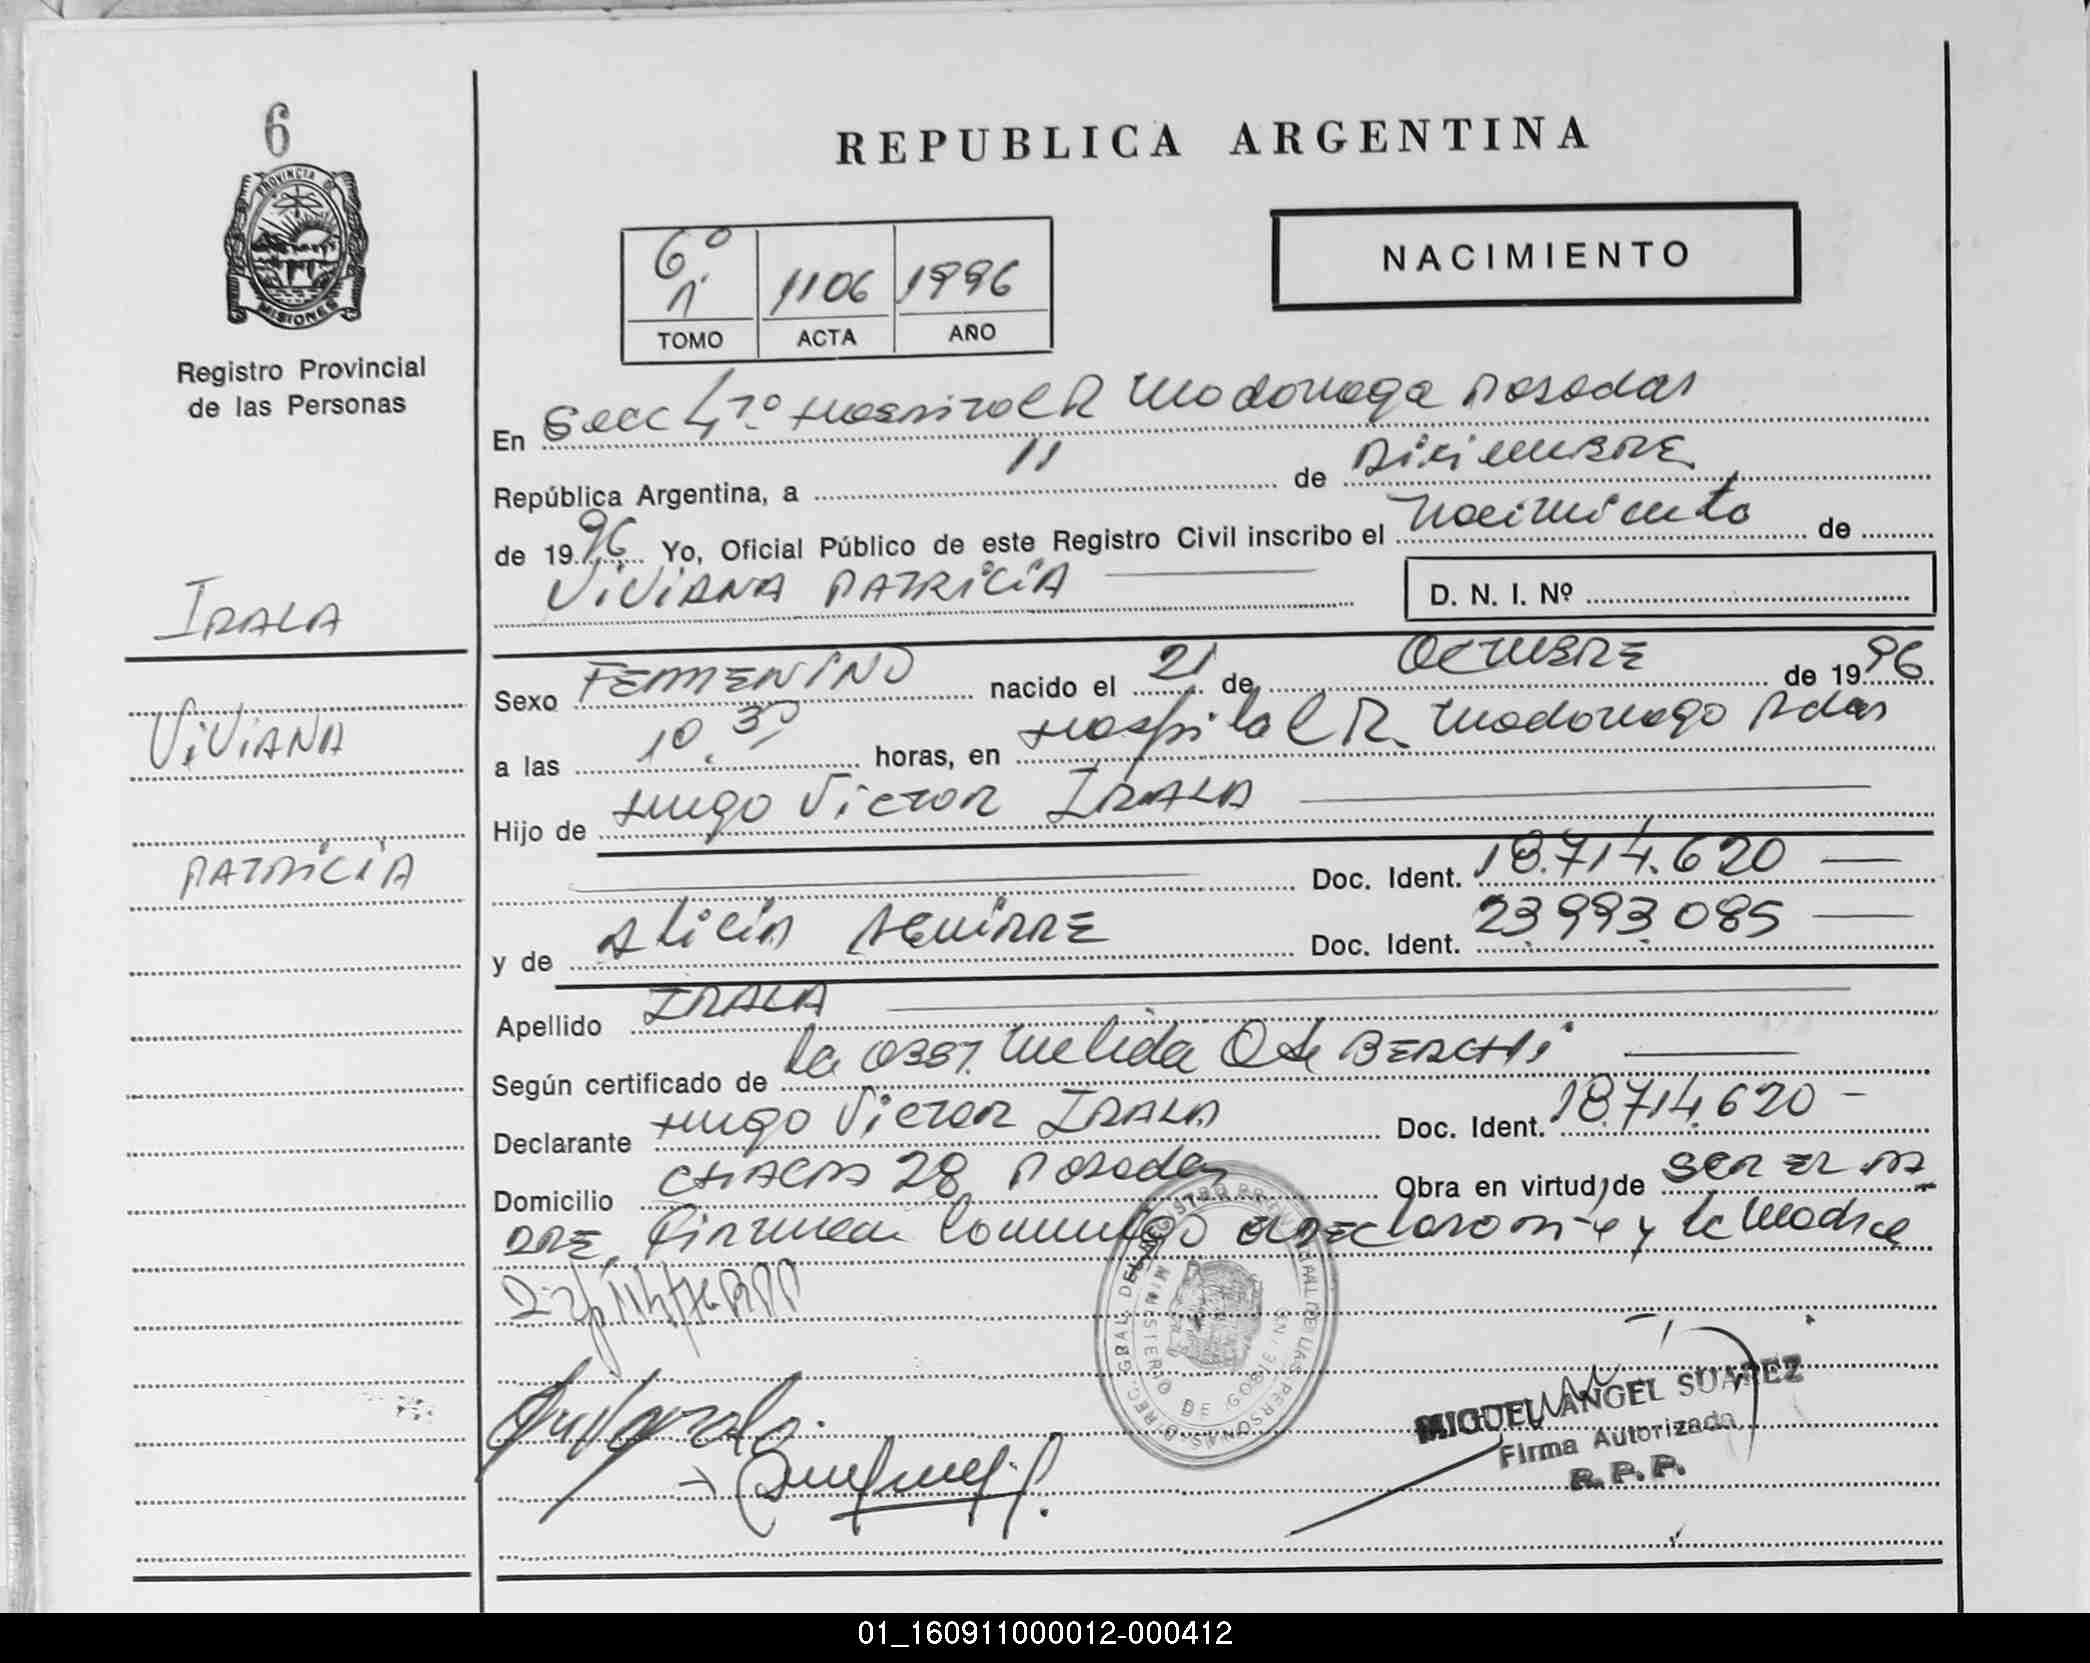 6
PROVINCIA DE
MISIONES
Registro Provincial
de las Personas
IRALA
VIVIANA
PATRICIA
REPUBLICA ARGENTINA
NACIMIENTO
6º 1106 1996
TOMO ACTA AÑO
En Secc 4ta Hospital R Madariaga Posadas
República Argentina, a 11 de DICIEMBRE
de 1996 Yo, Oficial Público de este Registro Civil inscribo el Nacimiento de
VIVIANA PATRICIA D. N. I. Nº
Sexo FEMENINO nacido el 21 de OCTUBRE de 1996
a las 10.30 horas, en Hospital R. Madariaga Pdas
Hijo de Hugo Victor IRALA
Doc. Ident. 18.714.620
y de Alicia AGUIRRE Doc. Ident. 23.993.085
Apellido IRALA
Según certificado de la OBST. Melida
Declarante Hugo Victor IRALA Doc. Ident. 18.714.620
Domicilio CHACRA 28 Posadas Obra en virtud de SER EL PA
DRE. Firman Conmigo el DEClarante y la Madre
REG. GRAL. DEL REGISTRO PROVINCIAL DE LAS PERSONAS
MINISTERIO DE GOBIERNO
MIGUEL ANGEL SUAREZ
Firma Autorizada
R. P. P.
01_160911000012-000412